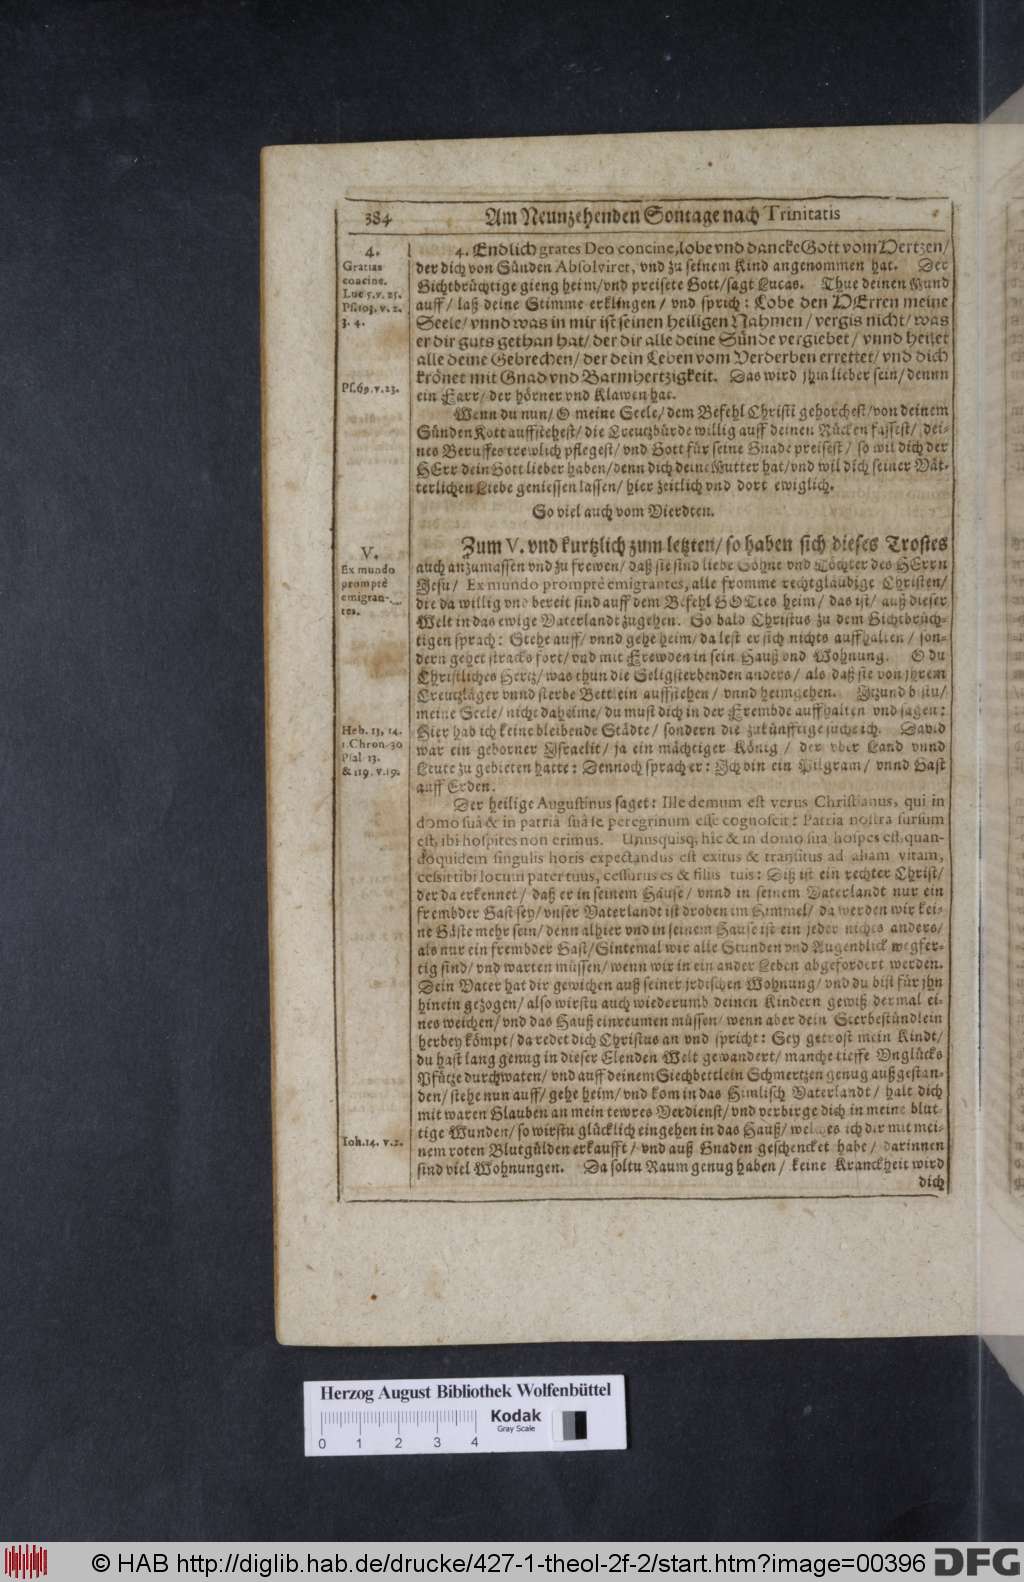 384 Am Neunzehenden Sontage nach Trinitatis
4.
Gratias
concine.
Luc 5. v. 25.
Ps. 103. v. 2.
3. 4.
Ps. 69. v. 23.
4. Endlich grates Deo concine, lobe vnd dancke Gott vom Hertzen/
der dich von Sünden Absolviret, vnd zu seinem Kind angenommen hat. Der
Gichtbrüchtige gieng heim/ vnd preisete Gott/ sagt Lucas. Thue deinen Mund
auff/ laß deine Stimme erklingen/ vnd sprich: Lobe den HErren meine
Seele/ vnnd was in mir ist seinen heiligen Nahmen/ vergis nicht/ was
er dir guts gethan hat/ der dir alle deine Sünde vergiebet/ vnnd heilet
alle deine Gebrechen/ der dein Leben vom Verderben errettet/ vnd dich
krönet mit Gnad vnd Barmhertzigkeit. Das wird jhm lieber sein/ denn
ein Farr/ der hörner vnd Klawen hat.
Wenn du nun/ O meine Seele/ dem Befehl Christi gehorchest/ von deinem
Sünden Kott auffstehest/ die Creutzbürde willig auff deinen Rücken fassest/ dei-
nes Beruffes trewlich pflegest/ vnd Gott für seine Gnade preisest/ so wil dich der
HErr dein Gott lieber haben/ denn dich deine Mutter hat/ vnd wil dich seiner Vät-
terlichen Liebe geniessen lassen/ hier zeitlich vnd dort ewiglich.
So viel auch vom Vierdten.
V.
Ex mundo
promptè
emigran-
tes.
Heb. 13, 14.
1. Chron. 30
Psal 13.
& 119. v. 19.
Zum V. vnd kurtzlich zum letzten/ so haben sich dieses Trostes
auch anzumassen vnd zu frewen/ daß sie sind liebe Söhne vnd Töchter des HErrn
Jesu/ Ex mundo promptè emigrantes, alle fromme rechtgläubige Christen/
die da willig vnd bereit sind auff dem Befehl GOTtes heim/ das ist/ auß dieser
Welt in das ewige Vaterlandt zugehen. So bald Christus zu dem Gichtbrüch-
tigen sprach: Stehe auff/ vnnd gehe heim/ da lest er sich nichts auffhalten/ son-
dern gehet stracks fort/ vnd mit Frewden in sein Hauß vnd Wohnung. O du
Christliches Hertz/ was thun die Seligsterbenden anders/ als daß sie von jhrem
Creutzläger vnnd sterbe Bettlein auffstehen/ vnnd heimgehen. Jtzund bistu/
meine Seele/ nicht daheime/ du must dich in der Frembde auffhalten vnd sagen:
Hier hab ich keine bleibende Städte/ sondern die zukünfftige suche ich. David
war ein geborner Jsraelit/ ja ein mächtiger König/ der vber Land vnnd
Leute zu gebieten hatte: Dennoch sprach er: Jch bin ein Pilgram/ vnnd Gast
auff Erden.
Der heilige Augustinus saget: Ille demum est verus Christianus, qui in
domo suâ & in patriâ suâ se peregrinum esse cognoscit: Patria nostra sursum
est, ibi hospites non erimus. Unusquisq; hîc & in domo sua hospes est, quan-
doquidem singulis horis expectandus est exitus & transitus ad aliam vitam,
cessit tibi locum pater tuus, cessurus es & filiis tuis: Diß ist ein rechter Christ/
der da erkennet/ daß er in seinem Hause/ vnnd in seinem Vaterlandt nur ein
frembder Gast sey/ vnser Vaterlandt ist droben im Himmel/ da werden wir kei-
ne Gäste mehr sein/ denn alhier vnd in seinem Hause ist ein jeder nichts anders/
als nur ein frembder Gast/ Sintemal wir alle Stunden vnd Augenblick wegfer-
tig sind/ vnd warten müssen/ wenn wir in ein ander Leben abgefordert werden.
Dein Vater hat dir gewichen auß seiner jrdischen Wohnung/ vnd du bist für jhn
hinein gezogen/ also wirstu auch wiederumb deinen Kindern gewiß dermal ei-
nes weichen/ vnd das Hauß einreumen müssen/ wenn aber dein Sterbestündlein
herbey kömpt/ da redet dich Christus an vnd spricht: Sey getrost mein Kindt/
du hast lang genug in dieser Elenden Welt gewandert/ manche tieffe Vnglücks
Pfütze durchwaten/ vnd auff deinem Siechbettlein Schmertzen genug außgestan-
den/ stehe nun auff/ gehe heim/ vnd kom in das Himlisch Vaterlandt/ halt dich
mit waren Glauben an mein tewres Verdienst/ vnd verbirge dich in meine blut-
tige Wunden/ so wirstu glücklich eingehen in das Hauß/ welches ich dir mit mei-
nem roten Blutgülden erkaufft/ vnd auß Gnaden geschencket habe/ darinnen
sind viel Wohnungen. Da soltu Raum genug haben/ keine Kranckheit wird
Ioh. 14. v. 2.
dich
Herzog August Bibliothek Wolfenbüttel
Kodak
Gray Scale
0 1 2 3 4
© HAB http://diglib.hab.de/drucke/427-1-theol-2f-2/start.htm?image=00396 DFG